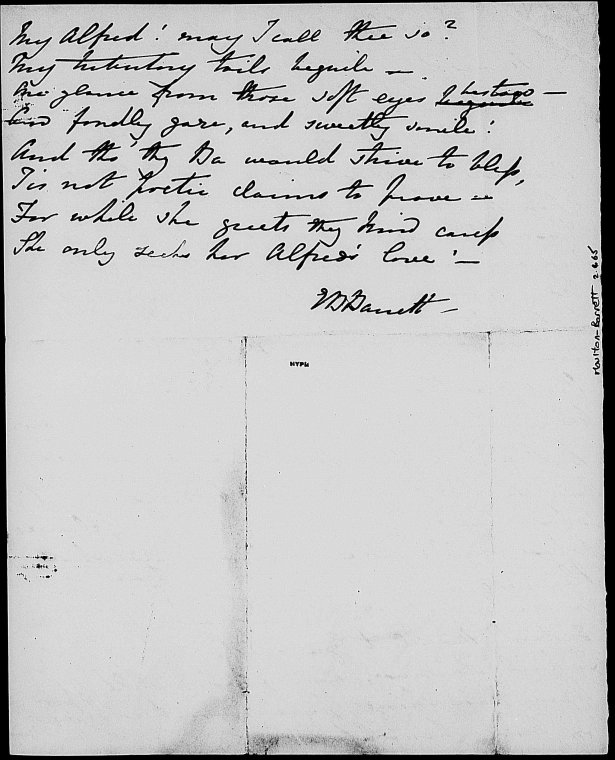 My Alfred! may I call thee so?
My tributary toils beguile —
One glance from those soft eyes bestow —
And fondly gaze, and sweetly smile!
And tho' thy Ba would strive to bless,
Tis not poetic claims to prove —
For while she greets thy kind caress
She only seeks her Alfred's love! —
EBBarrett —
NYPN
Moulton-Barrett 2.465